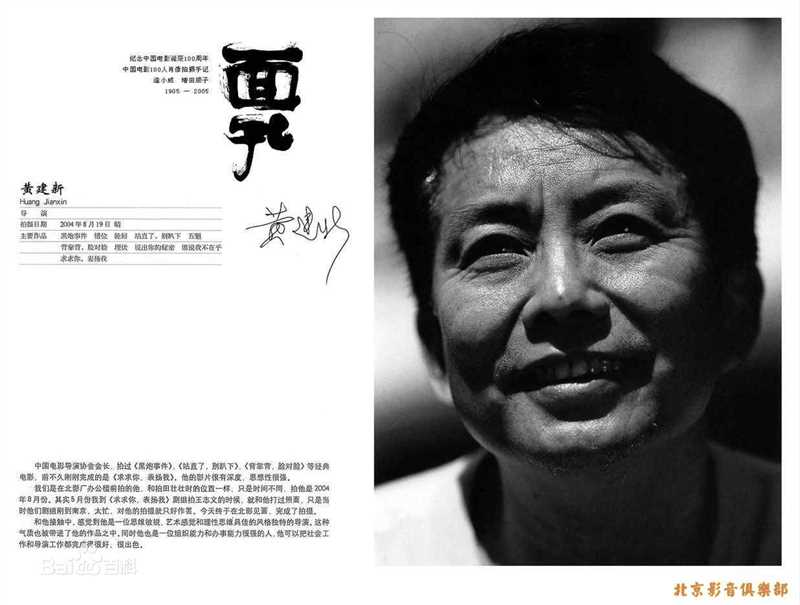 纪念中国电影诞辰100周年
中国电影100人肖像拍摄手记
逄小威 增田顺子
1905 — 2005
面孔
黄建新
Huang Jianxin
导 演
拍摄日期 2004年8月19日 晴
主要作品 黑炮事件 错位 轮回 站直了,别趴下 五魁
背靠背,脸对脸 埋伏 说出你的秘密 谁说我不在乎
求求你,表扬我
黄建新
中国电影导演协会会长,拍过《黑炮事件》、《站直了,别趴下》、《背靠背,脸对脸》等经典
电影,前不久刚刚完成的是《求求你,表扬我》。他的影片很有深度,思想性很强。
我们是在北影厂办公楼前拍的他,和拍田壮壮时的位置一样,只是时间不同,拍他是2004
年8月份。其实5月份我到《求求你,表扬我》剧组拍王志文的时候,就和他打过照面,只是当
时他们剧组刚到南京,太忙,对他的拍摄就只好作罢。今天终于在北影见面,完成了拍摄。
和他接触中,感觉到他是一位思维敏锐,艺术感觉和理性思维具佳的风格独特的导演。这种
气质也被带进了他的作品之中。同时他也是一位组织能力和办事能力很强的人,他可以把社会工
作和导演工作都完成得很好,很出色。
Baidu百科
北京影音俱樂部